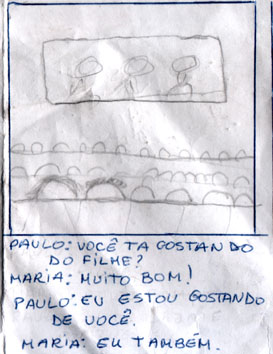 PAULO: VOCÊ TA GOSTANDO
DO FILME?
MARIA: MUITO BOM!
PAULO: EU ESTOU GOSTANDO
DE VOCÊ.
MARIA: EU TAMBÉM.